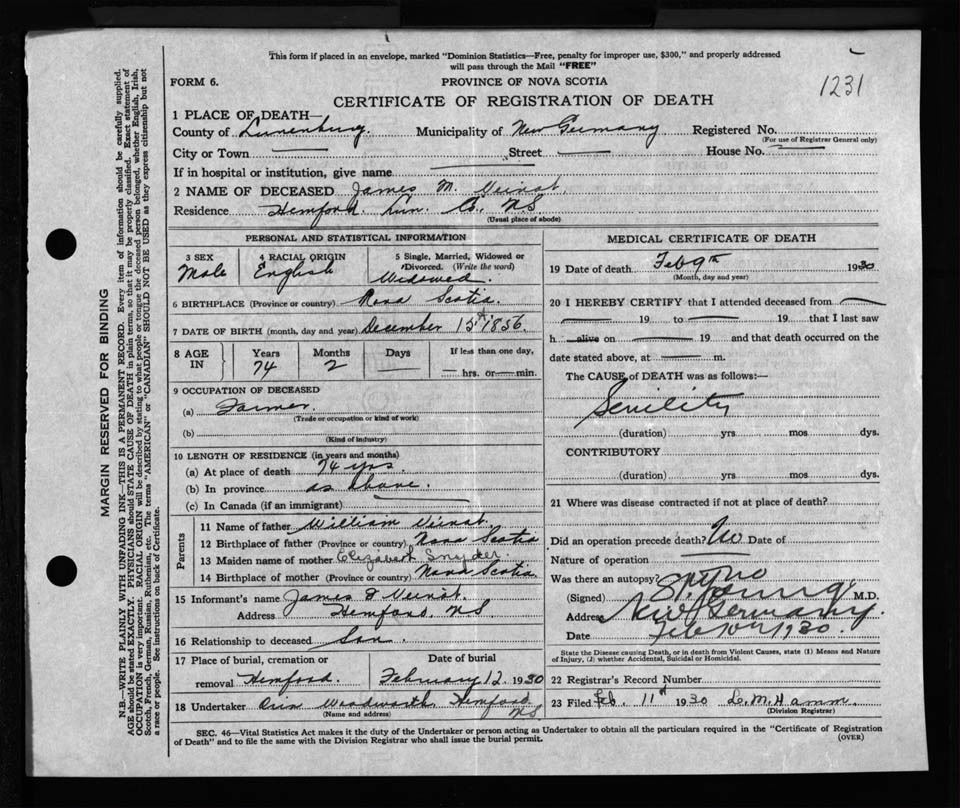 This form if placed in an envelope, marked "Dominion Statistics—Free, penalty for improper use, $300," and properly addressed
will pass through the Mail "FREE"
1231
FORM 6.
PROVINCE OF NOVA SCOTIA
CERTIFICATE OF REGISTRATION OF DEATH
1 PLACE OF DEATH—
County of Lunenburg. Municipality of New Germany Registered No.
(For use of Registrar General only)
City or Town Street House No.
If in hospital or institution, give name
2 NAME OF DECEASED James M. Veinot.
Residence Hemford Lun. Co. NS.
(Usual place of abode)
PERSONAL AND STATISTICAL INFORMATION
3 SEX 4 RACIAL ORIGIN 5 Single, Married, Widowed or
Divorced. (Write the word)
Male English Widowed.
6 BIRTHPLACE (Province or country) Nova Scotia.
7 DATE OF BIRTH (month, day and year) December 15th 1856.
8 AGE IN Years Months Days If less than one day,
74 2 — — hrs. or — min.
9 OCCUPATION OF DECEASED
(a) Farmer.
(Trade or occupation or kind of work)
(b)
(Kind of industry)
10 LENGTH OF RESIDENCE (in years and months)
(a) At place of death 74 yrs.
(b) In province as above.
(c) In Canada (if an immigrant)
Parents
11 Name of father William Veinot.
12 Birthplace of father (Province or country) Nova Scotia
13 Maiden name of mother Elizabeth Snyder.
14 Birthplace of mother (Province or country) Nova Scotia.
15 Informant's name James Veinot.
Address Hemford, NS
16 Relationship to deceased Son.
17 Place of burial, cremation or Date of burial
removal Hemford. February 12. 1930
18 Undertaker Woodworth Hemford
NS
(Name and address)
MEDICAL CERTIFICATE OF DEATH
19 Date of death Feb 9th 1930
(Month, day and year)
20 I HEREBY CERTIFY that I attended deceased from —
— 19 to — 19 that I last saw
h alive on — 19 and that death occurred on the
date stated above, at — m.
The CAUSE of DEATH was as follows:—
Senility
(duration) yrs mos dys.
CONTRIBUTORY
(duration) yrs mos dys.
21 Where was disease contracted if not at place of death?
Did an operation precede death? No Date of
Nature of operation
Was there an autopsy? no
(Signed) Young M.D.
Address New Germany
Date Feb 10th 1930.
State the Disease causing Death, or in death from Violent Causes, state (1) Means and Nature
of Injury, (2) whether Accidental, Suicidal or Homicidal.
22 Registrar's Record Number
23 Filed Feb. 11th 1930 L. M. Hamm.
(Division Registrar)
SEC. 46—Vital Statistics Act makes it the duty of the Undertaker or person acting as Undertaker to obtain all the particulars required in the "Certificate of Registration
of Death" and to file the same with the Division Registrar who shall issue the burial permit. (OVER)
MARGIN RESERVED FOR BINDING
N.B.—WRITE PLAINLY WITH UNFADING INK—THIS IS A PERMANENT RECORD. Every item of information should be carefully supplied.
AGE should be stated EXACTLY. PHYSICIANS should STATE CAUSE OF DEATH in plain terms, so that it may be properly classified. Exact statement of
OCCUPATION is very important. RACIAL ORIGIN will be described by stating to what people or tongue the deceased person belonged, whether English, Irish,
Scotch, French, German, Russian, Ruthenian, etc. The terms "AMERICAN" or "CANADIAN" SHOULD NOT BE USED as they express citizenship but not
a race or people. See instructions on back of Certificate.